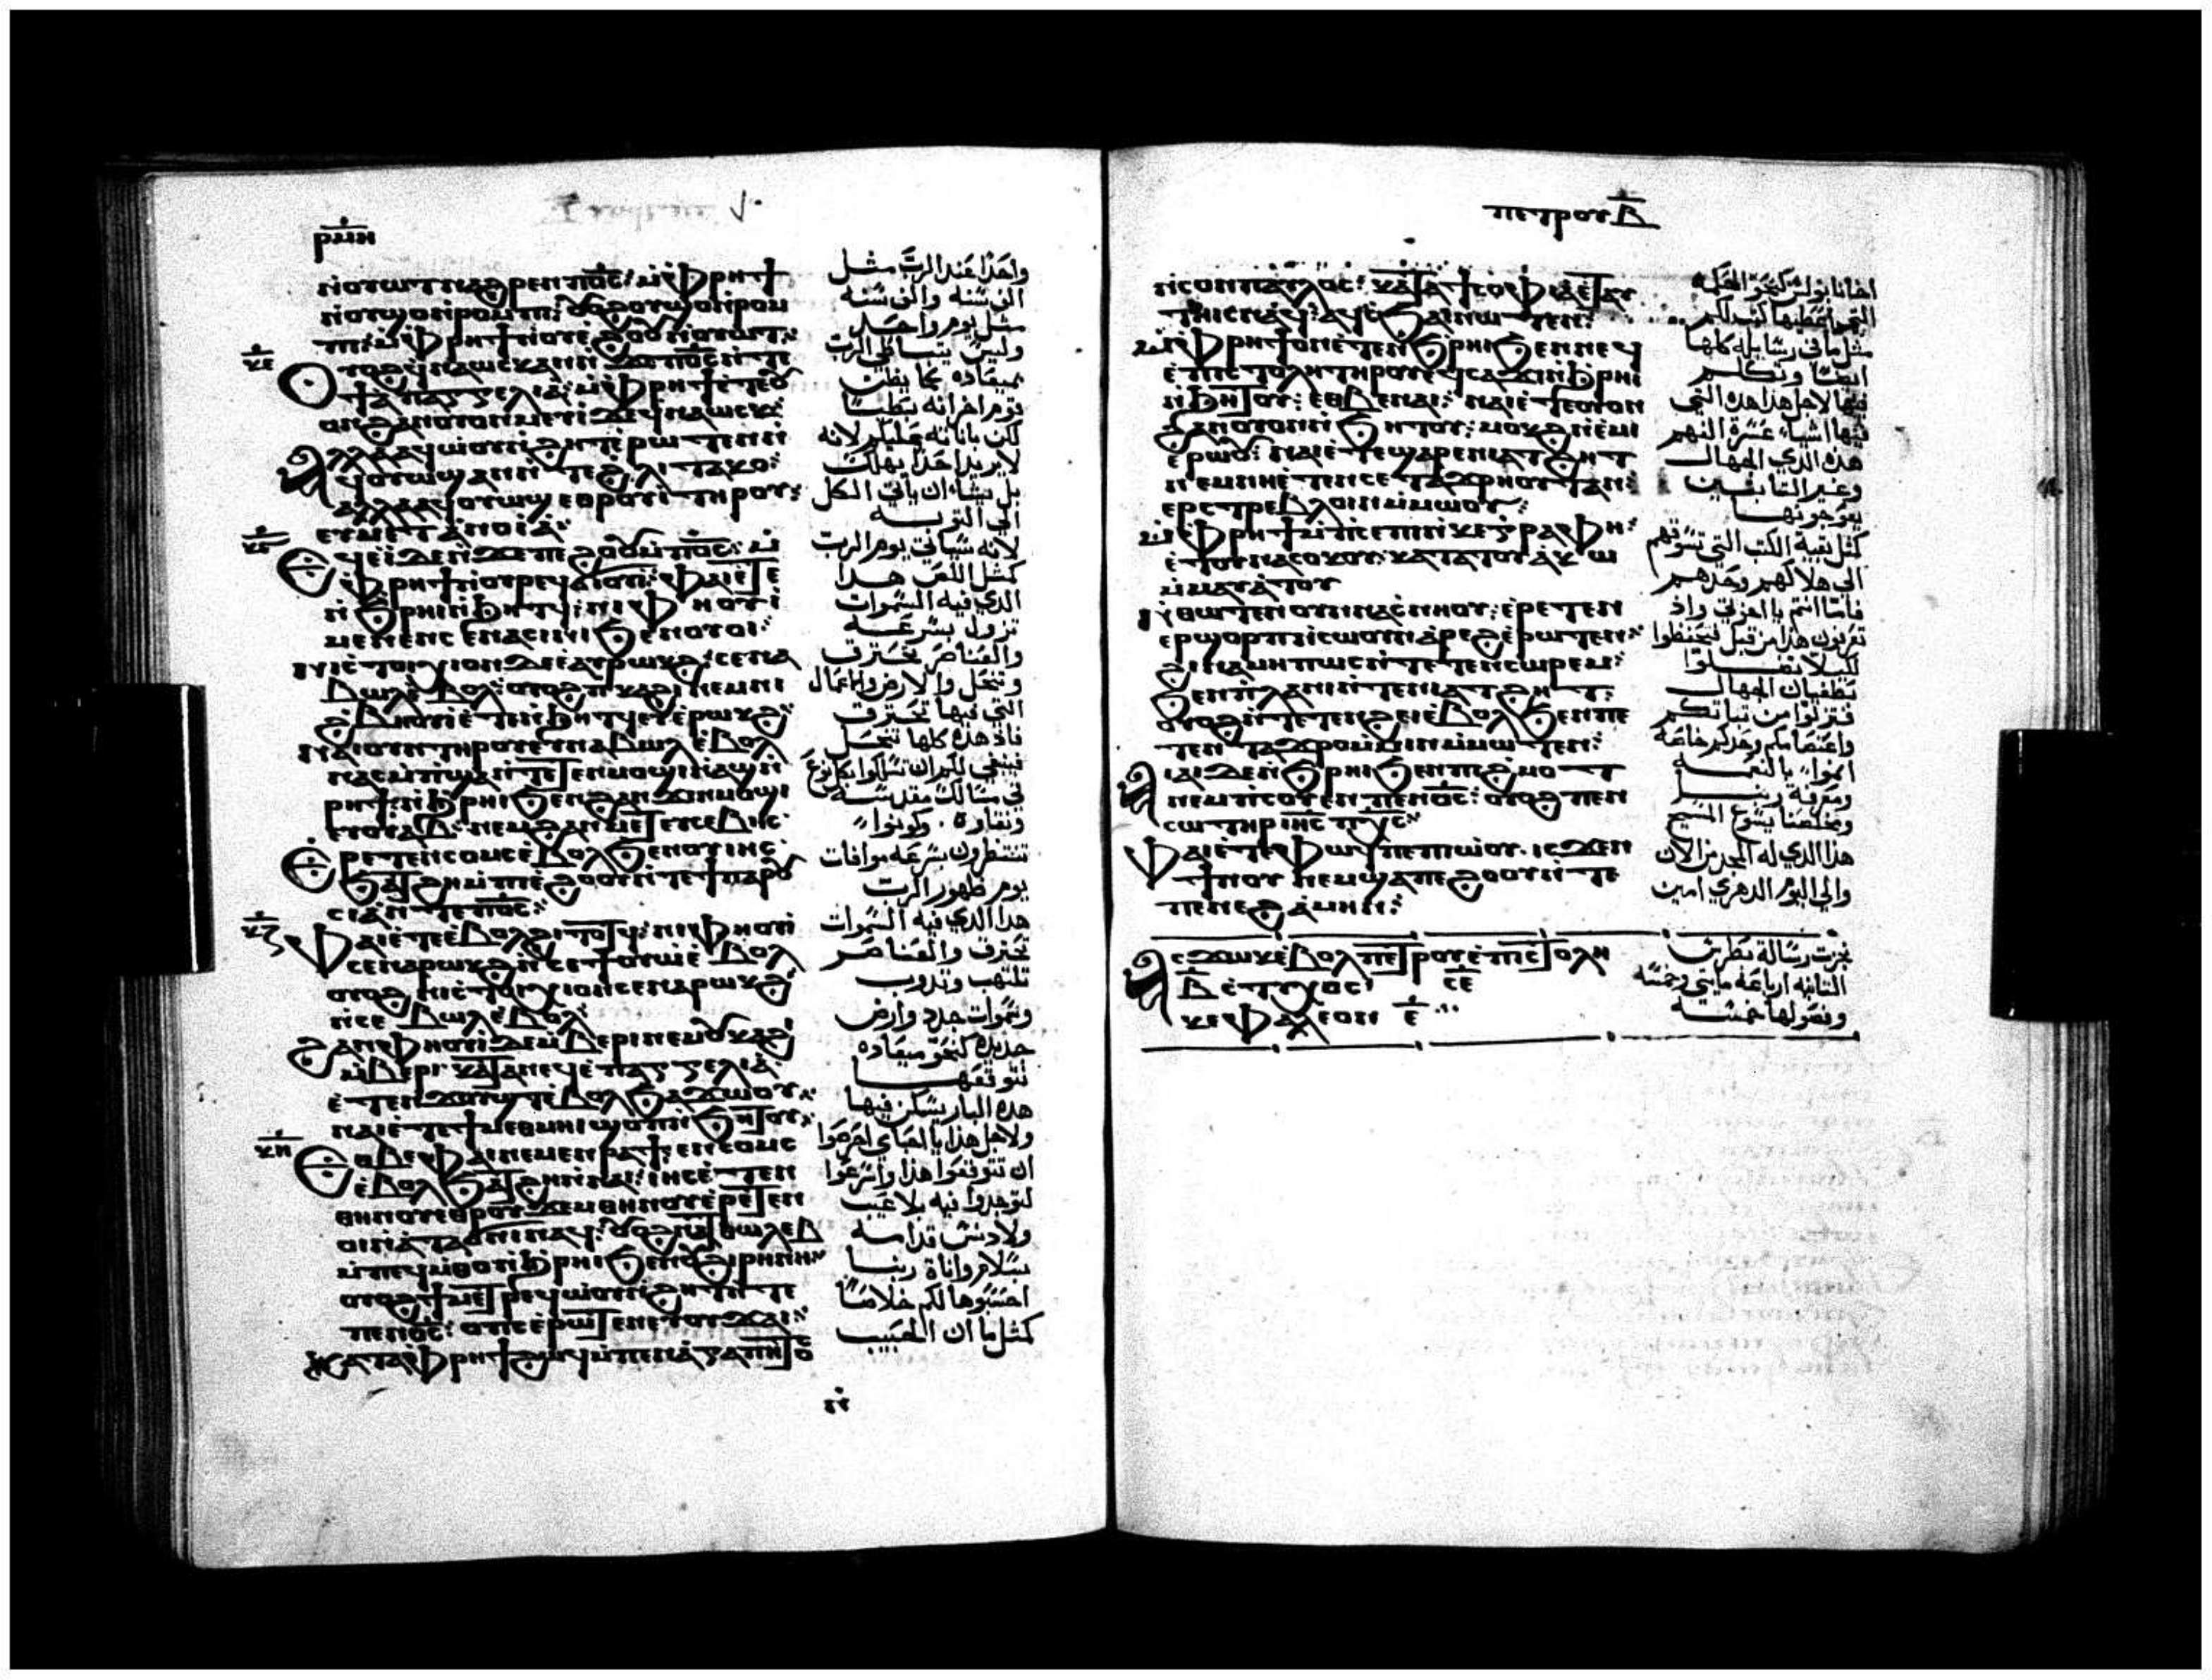 ⲣⲙⲏ
ⲛⲟⲩⲱⲧ ⲛⲁϩⲣⲉⲛ ⲡⲟ̅ⲥ̅: ⲙ̀ⲫⲣⲏϯ
ⲛ̀ⲟⲩϣⲟ ⲛ̀ⲣⲟⲙⲡⲓ: ⲟⲩⲟϩ ⲟⲩϣⲟ ⲛ̀ⲣⲟⲙ
ⲡⲓ: ⲙ̀ⲫⲣⲏϯ ⲛ̀ⲟⲩⲉ̀ϩⲟⲟⲩ ⲛ̀ⲟⲩⲱⲧ:
ⲕⲉ
ⲟⲩⲟϩ ϥⲛⲁⲱⲥⲕ ⲁⲛ ⲛ̀ϫⲉ ⲡⲟ̅ⲥ̅ ⲛ̀ⲧⲉ
ϯⲉⲡⲁⲅⲅⲉⲗⲓⲁ: ⲙ̀ⲫⲣⲏϯ ⲉ̀ⲧⲉ ⲟⲩ
ⲟⲛ ϩⲁⲛⲟⲩⲟⲛ ⲙⲉⲩⲓ ϫⲉ ϥⲛⲁⲱⲥⲕ:
ⲁⲗⲗⲁ ϥⲱⲟⲩ ⲛ̀ϩⲏⲧ ⲉ̀ⲣⲱⲧⲉⲛ ⲛ̀
ϥⲟⲩⲱϣ ⲁⲛ ⲛ̀ⲧⲉ ϩⲗⲓ ⲧⲁⲕⲟ:
ⲁⲗⲗⲁ ⲉϥⲟⲩⲱϣ ⲉⲑⲣⲟⲩⲓ̀ ⲧⲏⲣⲟⲩ:
ⲉⲩⲙⲉⲧⲁⲛⲟⲓⲁ:
ⲕⲋ
ⲉϥⲉⲓ̀ ⲇⲉ ⲛ̀ϫⲉ ⲡⲉϩⲟⲟⲩ ⲙ̀ⲡⲟ̅ⲥ̅: ⲙ̀
ⲫⲣⲏϯ ⲛ̀ⲟⲩⲣⲉϥϭⲓⲟⲩⲓ: ⲫⲁⲓ ⲉⲧⲉ
ⲛ̀ϧⲣⲏⲓ ⲛ̀ϧⲏⲧϥ: ⲛⲓⲫⲏⲟⲩⲓ̀
ⲙⲉⲛ ⲉⲛⲁⲥⲓⲛⲓ ϧⲉⲛ ⲟⲩⲟⲓ:
ⲛⲓⲥ̀ⲧⲟⲓⲭⲓⲟⲛ ⲇⲉ ⲉⲩⲣⲱⲕϩ: ⲥⲉⲛⲁ
ⲃⲱⲗ ⲉ̀ⲃⲟⲗ: ⲟⲩⲟϩ ⲡⲕⲁϩⲓ ⲛⲉⲙ ⲛⲓ
ϩⲃⲏⲟⲩⲓ̀ ⲉ̀ⲧⲉⲛ̀ϧⲏⲧϥ ⲉⲩⲉ̀ⲣⲱⲕϩ
ⲛⲁⲓ ⲟⲩⲛ ⲧⲏⲣⲟⲩ ⲉⲩⲛⲁⲃⲱⲗ ⲉ̀ⲃⲟⲗ
ⲛⲁⲥⲙ̀ⲡϣⲁ ⲛ̀ⲧⲉⲧⲉⲛⲙⲟϣⲓ ⲛ̀ⲁϣ ⲛ̀
ⲣⲏϯ: ⲛ̀ϧⲣⲏⲓ ϧⲉⲛ ϩⲁⲛϫⲓⲛⲙⲟϣⲓ
ⲉⲩⲟⲩⲁⲃ: ⲛⲉⲙ ϩⲁⲛⲙⲉⲧⲉⲩⲥⲉⲃⲏⲥ
ⲉⲣⲉⲧⲉⲛⲥⲟⲙⲥ ⲉ̀ⲃⲟⲗ ϧⲉⲛ ⲟⲩⲓⲏⲥ
ϧⲁϫⲱϥ ⲙ̀ⲡⲓⲉ̀ϩⲟⲟⲩ ⲛ̀ⲧⲉ ϯⲡⲁⲣⲟⲩ
ⲥⲓⲁ ⲛ̀ⲧⲉ ⲡⲟ̅ⲥ̅:
ⲕⲍ
ⲫⲁⲓ ⲉ̀ⲧⲉ ⲉ̀ⲃⲟⲗϩⲓⲧⲟⲧϥ: ⲛⲓⲫⲏⲟⲩⲓ
ⲥⲉⲛⲁⲣⲱⲕϩ ⲛ̀ⲥⲉϯⲟⲩⲱ ⲉ̀ⲃⲟⲗ
ⲟⲩⲟϩ ⲛⲓⲥ̀ⲧⲟⲓⲭⲓⲟⲛ ⲥⲉⲛⲁⲣⲱⲕϩ
ⲛ̀ⲥⲉ ⲃⲱⲗ ⲉ̀ⲃⲟⲗ
ϩⲁⲛⲫⲏⲟⲩⲓ ⲇⲉ ⲙ̀ⲃⲉⲣⲓ ⲛⲉⲙ ⲟⲩⲕⲁϩⲓ
ⲙ̀ⲃⲉⲣⲓ: ⲕⲁⲧⲁ ⲛⲉϥⲉ̀ⲡⲁⲅⲅⲉⲗⲓⲁ
ⲉ̀ⲧⲉⲛϫⲟⲩϣⲧ ⲉ̀ⲃⲟⲗ ϧⲁϫⲱⲟⲩ:
ⲛⲁⲓ ⲉ̀ⲧⲉ ϯⲙⲉⲑⲙⲏⲓ ϣⲟⲡ ⲛ̀ϧⲏⲧⲟⲩ:
ⲕⲏ
ⲉⲑⲃⲉ ⲫⲁⲓ ⲛⲁⲙⲉⲛⲣⲁϯ: ⲉⲛⲥⲟⲙⲥ
ⲉ̀ⲃⲟⲗ ϧⲁϫⲱⲟⲩ ⲛ̀ⲛⲁⲓ: ⲓⲏⲥ ⲉ̀ⲧⲉⲛ
ⲑⲏⲛⲟⲩ ⲉⲑⲣⲟⲩϫⲉⲙ ⲑⲏⲛⲟⲩ ⲉⲣⲉⲧⲉⲛ
ⲟⲓ ⲛ̀ⲁⲧⲁϭⲛⲓ ⲛⲁϥ: ⲟⲩⲟϩ ⲛ̀ⲁⲧⲑⲱⲗⲉⲃ
ⲙ̀ⲡⲉϥⲙ̀ⲑⲟ ⲛ̀ϧⲣⲏⲓ ϧⲉⲛ ⲟⲩϩⲓⲣⲏⲛⲏ
ⲟⲩⲟϩ ϯⲙⲉⲧⲣⲉϥⲱⲟⲩ ⲛ̀ϩⲏⲧ ⲛ̀ⲧⲉ
ⲡⲉⲛⲟ̅ⲥ̅: ⲟⲡⲥ ⲉ̀ⲣⲱⲧⲉⲛ ⲉⲩⲟⲩϫⲁⲓ:
ⲕⲁⲧⲁ ⲫⲣⲏϯ ϩⲱϥ ⲙ̀ⲡⲉⲛⲁ̀ⲅⲁⲡⲏⲧⲟⲥ
ⲛ̀
واحدًا عند الرب مثل
الف سنه والف سنه
مثل يوم واحد
وليس يتباطي الرب
بميعاده كما يظن
قوم اخر انه يبطي
لكن باناته عليكم لانه
لا يريد احدًا يهلك
بل يشاء ان ياتي الكل
الي التوبه
لانه سياتي يوم الرب
كمثل اللص هدا
الدي فيه السموات
تزول بسرعه
والعناصر تحترق
وتنحل والارض والاعمال
التي فيها تحترق
فاذ هده كلها تنحل
فينبغي لكم ان تسلكوا بكل نوع
في مسالك مقدسه
ونقاره وكونوا
تنتظرون بسرعه موافات
يوم ظهور الرب
هدا الدي فيه السموات
تحترق والعناصر
تلتهب وتدوب
وسموات جدد وارض
جديده كنحو ميعاده
نتوقعها
هده البار يسكن فيها
ولاجل هدا يا احباي احرصوا
ان تتوقعوا هدا واسرعوا
لتوجدوا فيه بلا عيب
ولا دنس قدامه
بسلام واناة ربنا
احسبوها لكم خلاصًا
كمثل ما ان الحبيب
ⲡⲉⲧⲣⲟⲩ ⲃ
ⲛ̀ⲥⲟⲛ ⲡⲁⲩⲗⲟⲥ: ⲕⲁⲧⲁ ϯⲥⲟⲫⲓⲁ ⲉ̀ⲧⲁⲩ
ⲧⲏⲓⲥ ⲛⲁϥ: ⲁϥⲥ̀ϧⲁⲓ ⲛⲱⲧⲉⲛ:
ⲙ̀ⲫⲣⲏϯ ⲟⲛ ⲉ̀ⲧⲉⲛ̀ϧⲣⲏⲓ ϧⲉⲛ ⲛⲉϥ
ⲉ̀ⲡⲓⲥⲧⲟⲗⲏ ⲧⲏⲣⲟⲩ ⲉϥⲥⲁϫⲓ ⲛ̀ϧⲣⲏⲓ
ⲛ̀ϧⲏⲧⲟⲩ: ⲉⲑⲃⲉ ⲛⲁⲓ: ⲛⲁⲓ ⲉ̀ⲧⲉ ⲟⲩⲟⲛ
ϩⲁⲛⲟⲩⲟⲛ ⲛ̀ϧⲏⲧⲟⲩ: ⲙⲟⲕϩ ⲛ̀ⲉⲙⲓ
ⲉ̀ⲣⲱⲟⲩ: ⲛⲁⲓ ⲉ̀ⲧⲉ ϣⲁⲣⲉ ⲛⲓⲁⲧϩⲏⲧ
ⲛⲉⲙ ⲛⲏ ⲉ̀ⲧⲉⲛⲥⲉⲧⲁϫⲣⲏⲟⲩⲧ ⲁⲛ:
ⲉⲣⲥⲧⲣⲉⲃⲗⲟⲓⲛ ⲙ̀ⲙⲱⲟⲩ:
ⲙ̀ⲫⲣⲏϯ ⲙ̀ⲡⲥⲉⲡⲓ ⲛ̀ⲕⲉⲅⲣⲁⲫⲏ:
ⲉ̀ⲩⲟⲩⲛⲁⲥⲟⲕⲟⲩ: ⲕⲁⲧⲁ ⲡⲟⲩⲧⲁⲕⲟ
ⲙ̀ⲙⲁⲩⲁⲧⲟⲩ
ⲛ̀ⲑⲱⲧⲉⲛ ⲟⲩⲛ ⲛⲁⲥ̀ⲛⲏⲟⲩ: ⲉ̀ⲣⲉⲧⲉⲛ
ⲉⲣϣⲟⲣⲡ ⲛ̀ⲥⲱⲟⲩⲛ ⲁ̀ⲣⲉϩ ⲉ̀ⲣⲱⲧⲉⲛ:
ϩⲓⲛⲁ ⲙⲏⲡⲱⲥ ⲛ̀ⲧⲉⲧⲉⲛⲥⲱⲣⲉⲙ:
ϧⲉⲛ ϯⲡⲗⲁⲛⲏ ⲛ̀ⲧⲉ ⲛⲓⲁⲧϩⲏⲧ:
ⲟⲩⲟϩ ⲛ̀ⲧⲉⲧⲉⲛϩⲉⲓ ⲉ̀ⲃⲟⲗ ϧⲉⲛ ⲡⲉ
ⲧⲉⲛⲧⲁϫⲣⲟ ⲙ̀ⲙⲓⲛ ⲙ̀ⲙⲱⲧⲉⲛ:
ⲁⲓⲁⲓ ⲇⲉ ⲛ̀ϧⲣⲏⲓ ϧⲉⲛ ⲡⲓϩⲙⲟⲧ
ⲛⲉⲙ ⲡⲥⲟⲩⲉⲛ ⲡⲉⲛⲟ̅ⲥ̅: ⲟⲩⲟϩ ⲡⲉⲛ
ⲥⲱⲧⲏⲣ ⲓⲏⲥ ⲡⲭⲥ
ⲫⲁⲓ ⲉ̀ⲧⲉ ⲫⲱϥ ⲡⲉ ⲡⲓⲱ̀ⲟⲩ: ⲓⲥϫⲉⲛ
ϯⲛⲟⲩ ⲛⲉⲙ ϣⲁ ⲡⲉϩⲟⲟⲩ ⲛ̀ⲧⲉ
ⲡⲉⲛⲉϩ ⲁ̀ⲙⲏⲛ:
ⲁⲥϫⲱⲕ ⲉ̀ⲃⲟⲗ ⲡⲉⲧⲣⲟⲩ ⲉ̀ⲡⲓⲥⲧⲟⲗⲏ
ⲃ ⲥ̀ⲧⲩⲭⲟⲥ ⲥⲉ
ⲕⲉⲫⲁⲗⲉⲟⲛ ⲉ
اخانا بولس كنحو الحكمه
التي اعطيها كتب لكم
مثل ما في رسايله كلها
ايضًا وتكلم
فيها لاجل هذا هده التي
فيها اشياء عسرة الفهم
هده الدي الجهال
وغير الثابتين
يعوجونها
كمثل بقية الكتب التي تسوقهم
الي هلاكهم وحدهم
فاما انتم يا اخوتي واذ
تعرفون هذا من قبل تحفظوا
لكيلا تضلوا
بطغيان الجهال
فتزلوا من ثباتكم
واعتصامكم وحدكم خاصة
انموا بالنعمه
ومعرفة ربنا
ومخلصنا يسوع المسيح
هدا الدي له المجد من الان
والي اليوم الدهري امين
نجزت رسالة بطرس
الثانيه ارباعه مايتي وخمسه
وفصولها خمسه